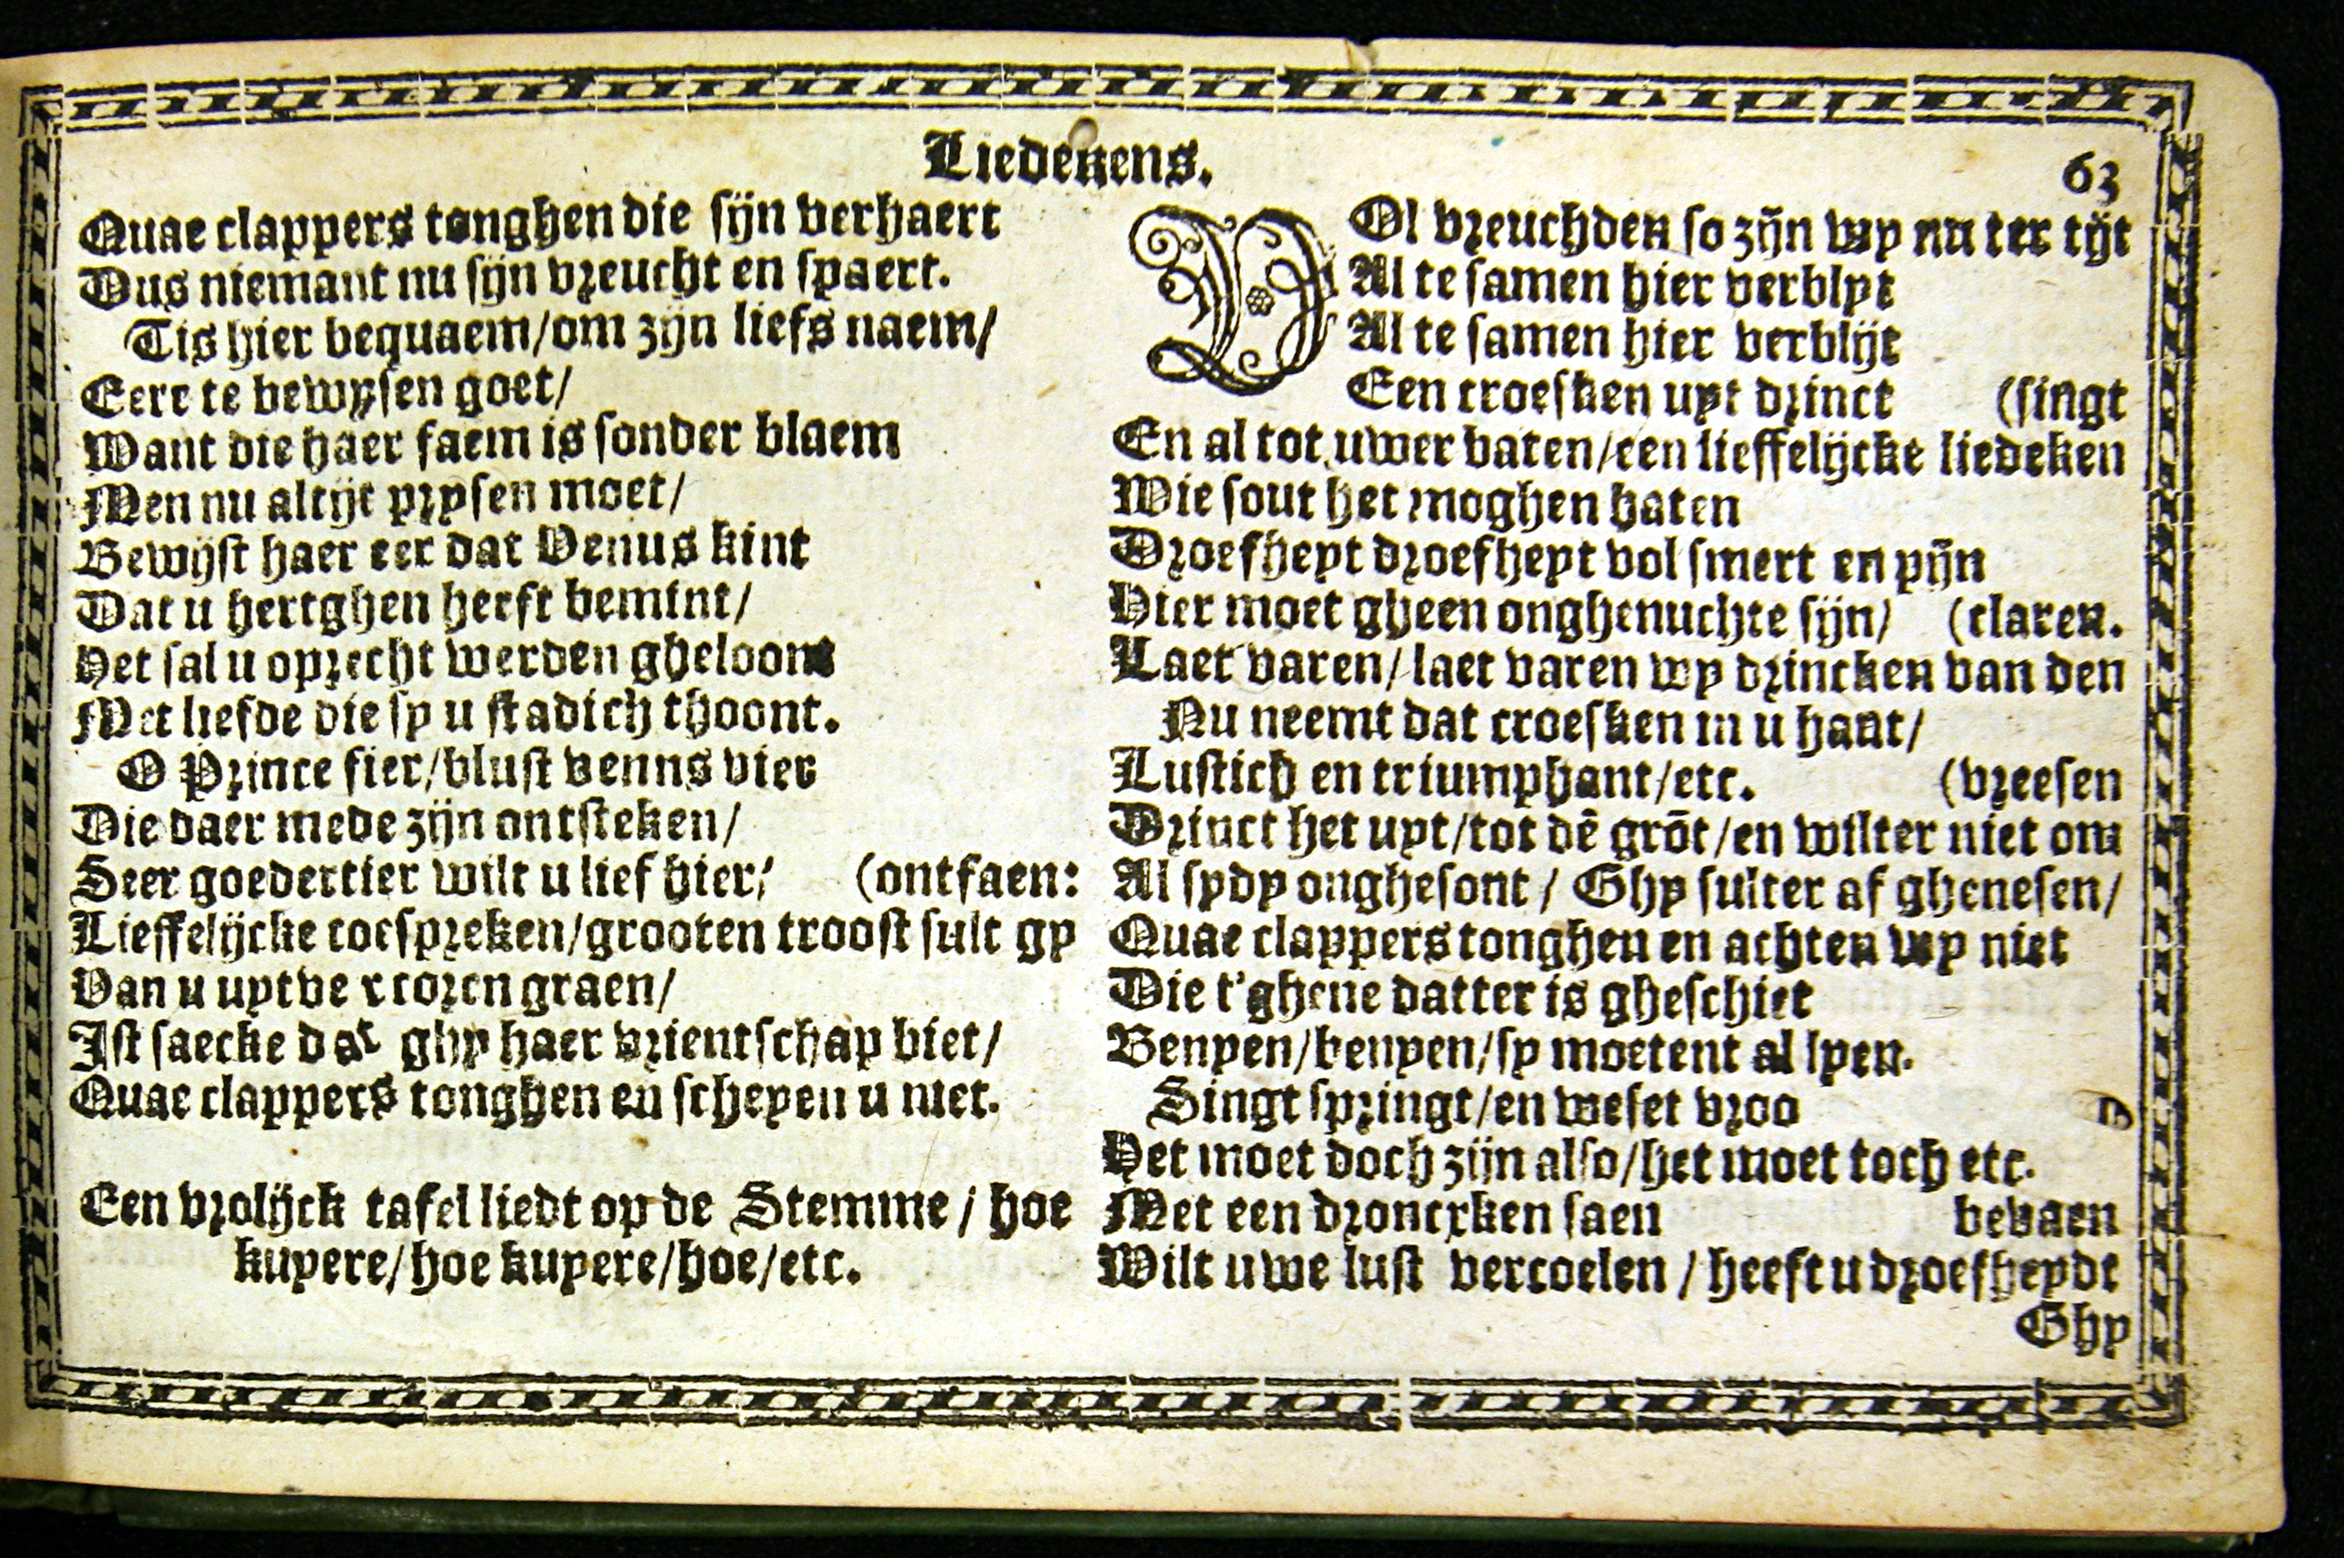 Liedekens.
63
Quae clappers tonghen die sijn verhaert
Dus niemant nu sijn vreucht en spaert.
Tis hier bequaem/om zijn liefs naem/
Eere te bewysen goet/
Want die haer faem is sonder blaem
Men nu altijt prysen moet/
Bewijst haer eer dat Venus kint
Dat u hertghen heeft bemint/
Het sal u oprecht werden gheloont
Met liefde die sy u stadich thoont.
O Prince fier/blust venns vier
Die daer mede zijn ontsteken/
Seer goedertier wilt u lief hier/ (ontfaen:
Lieffelijcke toespreken/grooten troost sult gy
Van u uytvercoren graen/
Ist saecke dat ghy haer vrientschap biet/
Quae clappers tonghen en scheyen u niet.
Een vrolijck tafel liedt op de Stemme / hoe
kuyere/hoe kuyere/hoe/etc.
VOl vreuchden so zijn wy nu ter tijt
Al te samen hier verblyt
Al te samen hier verblijt
Een croesken uyt drinct (singt
En al tot uwer baten/een lieffelijcke liedeken
Wie sout het moghen haten
Droefheyt droefheyt vol smert en pijn
Hier moet gheen onghenuchte sijn/ (claren.
Laet varen/laet varen wy drincken van den
Nu neemt dat croesken in u hant/
Lustich en triumphant/etc. (vreesen
Drinct het uyt/tot dē grōt/en wilter niet om
Al sydy onghesont / Ghy sulter af ghenesen/
Quae clappers tonghen en achten wy niet
Die t'ghene datter is gheschiet
Benyen/benyen/sy moetent al lyen.
Singt springt/en weset vroo
Het moet doch zijn also/het moet toch etc.
Met een droncxken saen bevaen
Wilt uwe lust vercoelen / heeft u droefheydt
Ghy